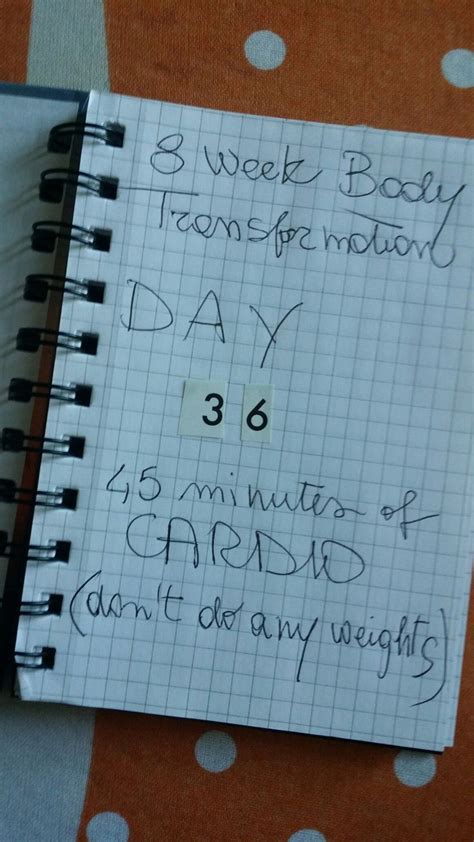 8 Week Body
Transformation
DAY
36
45 minutes of
CARDIO
(don't do any weights)